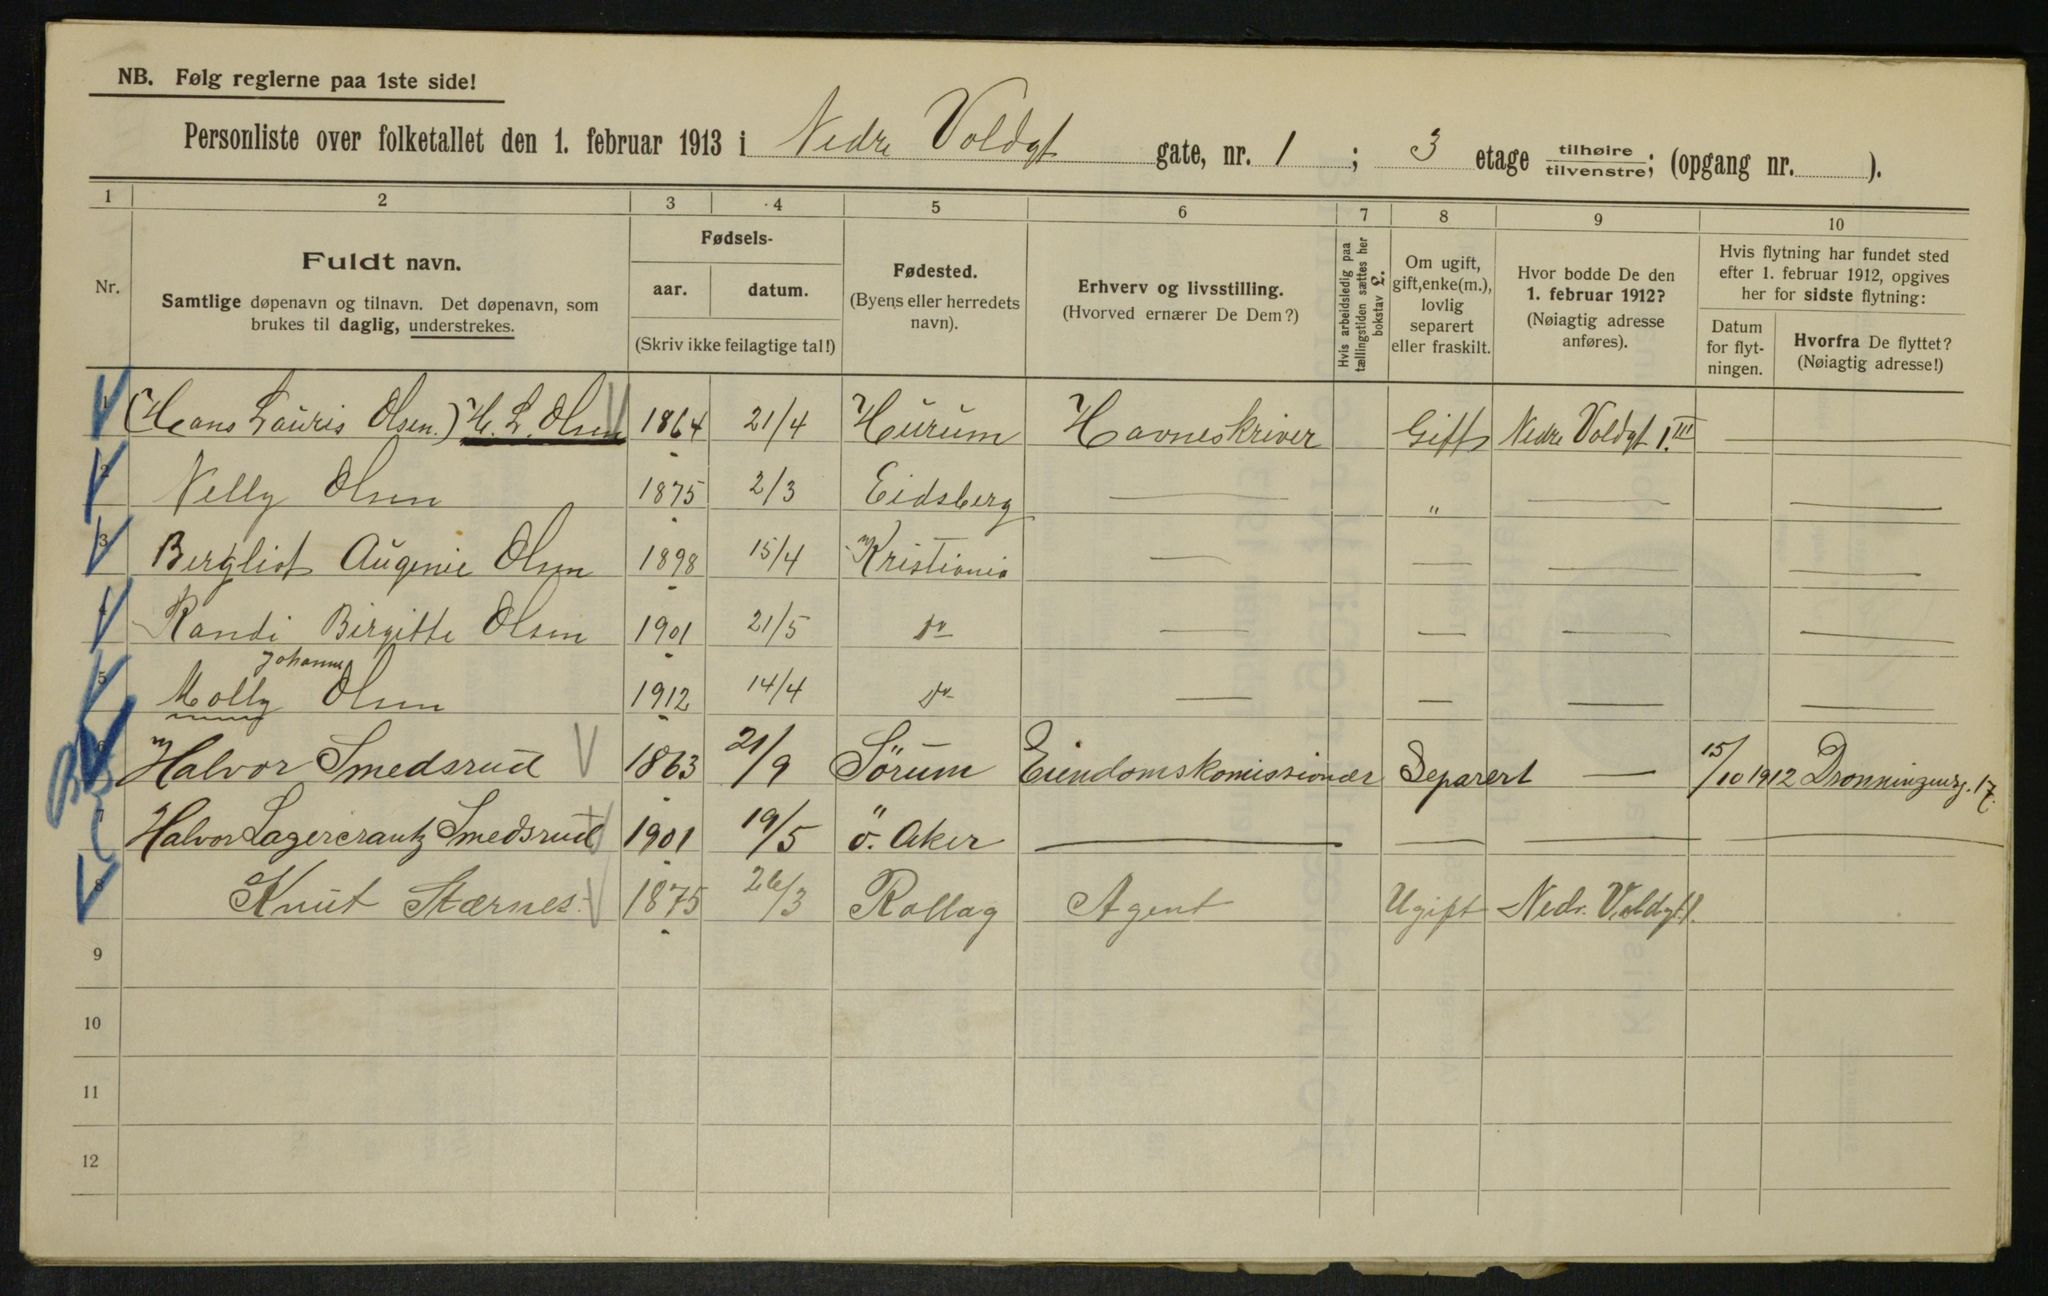 NB. Følg reglerne paa 1ste side!
Personliste over folketallet den 1. februar 1913 i Nedre Voldgt gate, nr. 1 ; 3 etage tilhøire / tilvenstre; (opgang nr. ).
1 2 3 4 5 6 7 8 9 10
Nr.
Fuldt navn.
Samtlige døpenavn og tilnavn. Det døpenavn, som
brukes til daglig, understrekes.
Fødsels-
aar. datum.
(Skriv ikke feilagtige tal!)
Fødested.
(Byens eller herredets
navn).
Erhverv og livsstilling.
(Hvorved ernærer De Dem?)
Hvis arbeidsledig paa
tællingstiden sættes her
bokstav L.
Om ugift,
gift, enke(m.),
lovlig
separert
eller fraskilt.
Hvor bodde De den
1. februar 1912?
(Nøiagtig adresse
anføres).
Hvis flytning har fundet sted
efter 1. februar 1912, opgives
her for sidste flytning:
Datum
for flyt-
ningen.
Hvorfra De flyttet?
(Nøiagtig adresse!)
1 (Hans Lauris Olsen.) H. L. Olsen 1864 21/4 Hurum Havneskriver Gift Nedre Voldgt 1.III — —
2 Nelly Olsen 1875 2/3 Eidsberg — " — —
3 Bergliot Augenie Olsen 1898 15/4 Kristiania — — — —
4 Randi Birgitte Olsen 1901 21/5 do — — — —
Johanne
5 Molly Olsen 1912 14/4 do — — — —
6 Halvor Smedsrud 1863 21/9 Sörum Eiendomskomissionær Separert — 15/10 1912 Dronningensg. 17.
7 Halvor Lagercrantz Smedsrud 1901 19/5 ö. Aker — — — —
8 Knut Stærnes. 1875 26/3 Rollag Agent Ugift Nedr. Voldgt 1.
9
10
11
12